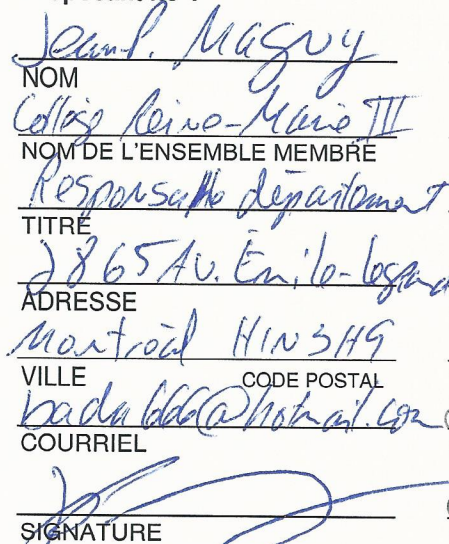 Jean-P. Magny
NOM
Collège Reine-Marie III
NOM DE L'ENSEMBLE MEMBRE
Responsable département
TITRE
2865 Av. Émile-Legrand
ADRESSE
Montréal H1N 3H9
VILLE CODE POSTAL
@hotmail.com
COURRIEL
SIGNATURE